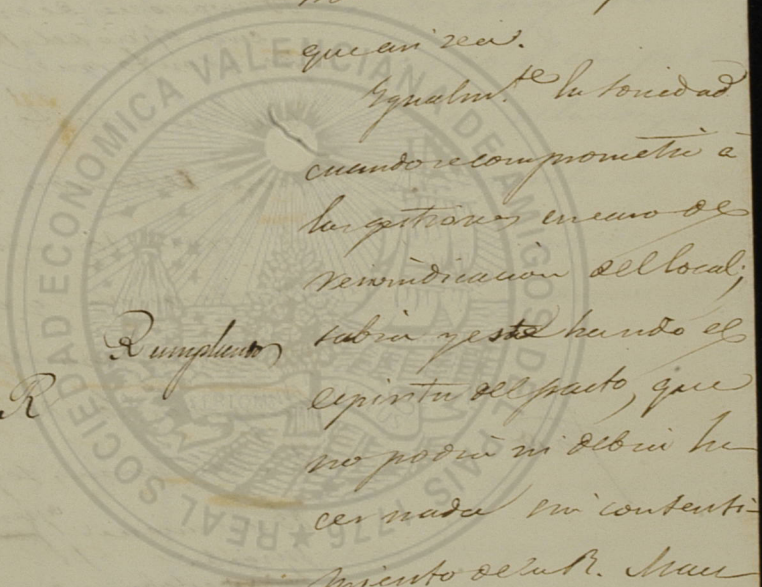 que asi sea.
Igualmte la Sociedad
cuando se comprometió á
las gestiones en caso de
reivindicacion del local;
sabia y está
espiritu del pacto, que
no podia ni debia ha-
cer nada sin consenti-
miento de la R. Maes
R
REAL SOCIEDAD ECONOMICA VALENCIANA DE AMIGOS DEL PAIS 1776